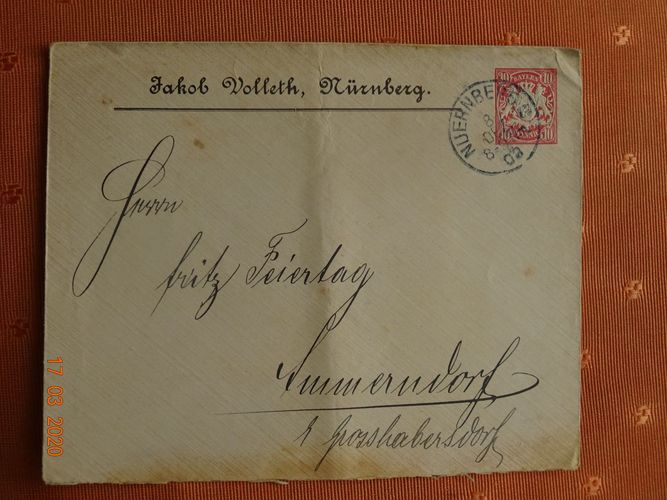 Jakob Volleth, Nürnberg.
10 BAYERN 10
10 10
NUERNBERG
Herrn
Fritz Feiertag
Ammerndorf
Grosshabersdorf
17 03 2020